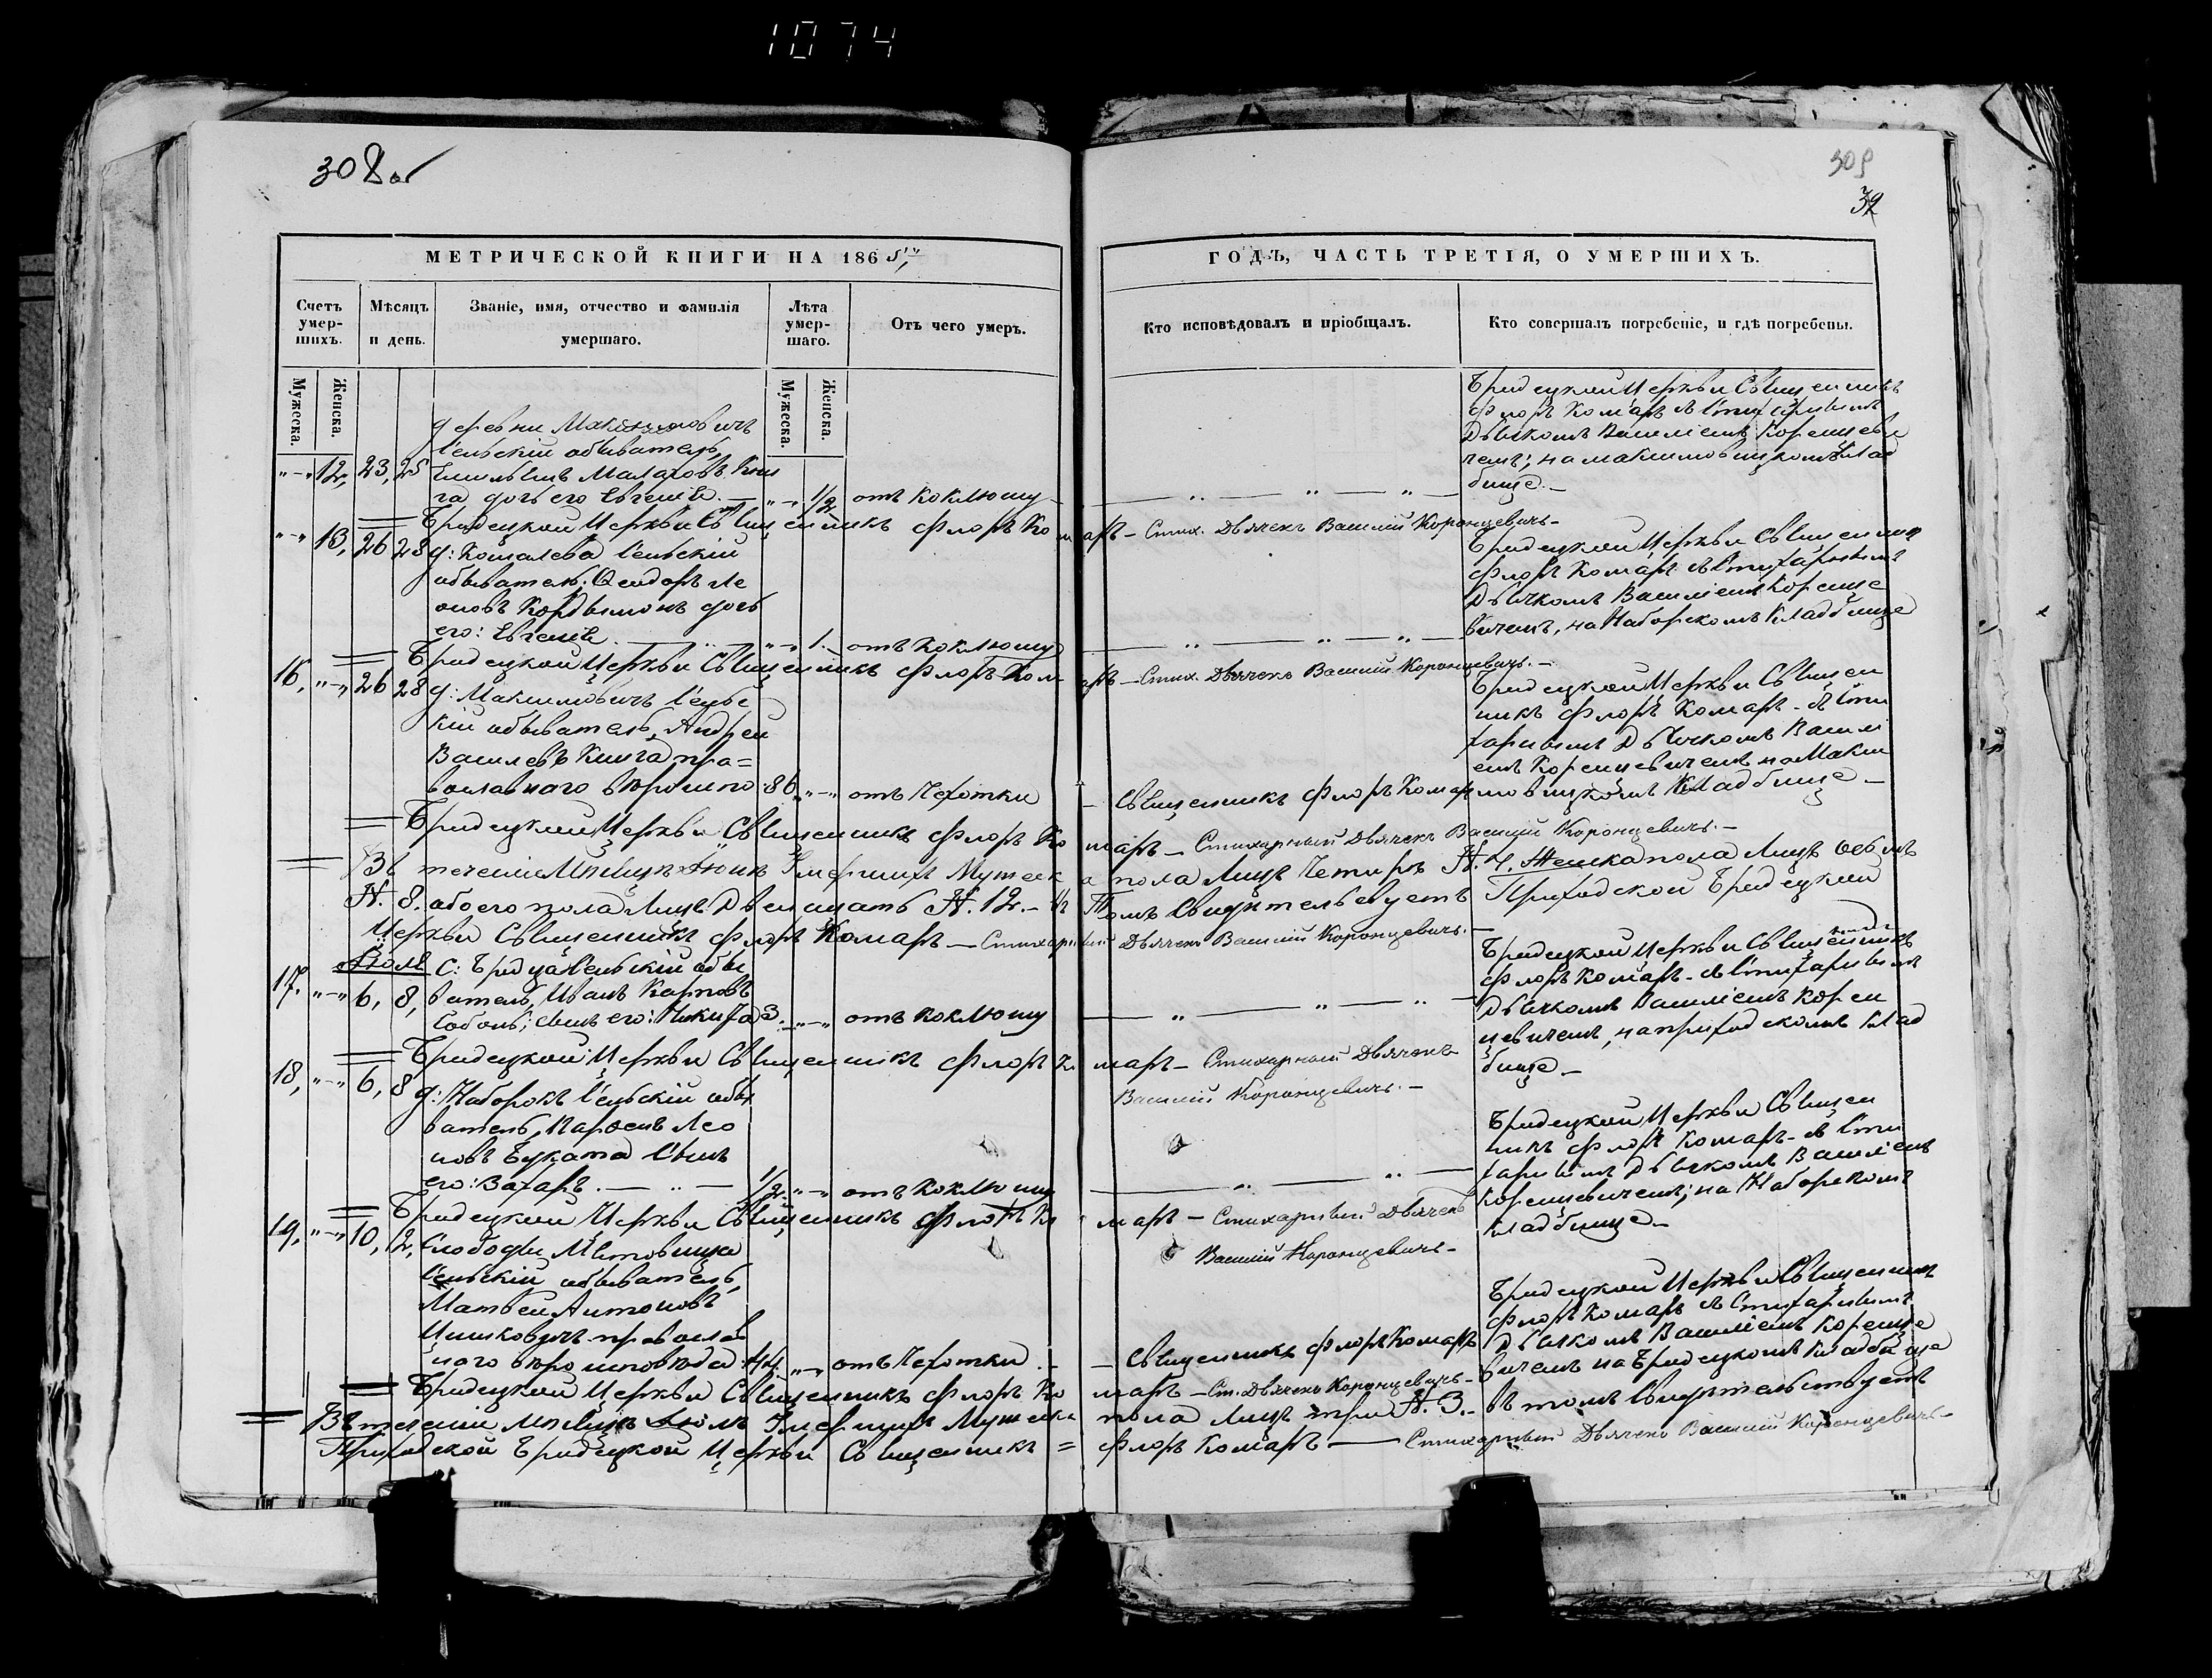 1074
308 об
309
32
МЕТРИЧЕСКОЙ КНИГИ НА 1865
ГОДЪ, ЧАСТЬ ТРЕТІЯ, О УМЕРШИХЪ.
Счетъ умер-шихъ.
Мѣсяцъ и день.
Званіе, имя, отчество и фамилія умершаго.
Лѣта умер-шаго.
Отъ чего умеръ.
Кто исповѣдовалъ и пріобщалъ.
Кто совершалъ погребеніе, и гдѣ погребены.
Мужеска.
Женска.
Мужеска.
Женска.
деревни Максимовичъ
сельскій обыватель,
12, 23, 25
Книга дочь его Евгенія.
1/2 отъ коклюшу
Бридецкой Церкви Священникъ
Флоръ Комаръ съ Стихарнымъ
Дьячкомъ Василіемъ Коренцеви
чемъ; на Максимовицкомъ клад
бище.
Бридецкой Церкви Священникъ Флоръ Комаръ – Стих. Дьячекъ Василій Коронцевичъ.
13, 26 28 д: Кошалева сельскій
обыватель: Ѳеодоръ Ле
оновъ дочь
его: Евгенія.
1. отъ коклюшу
Бридецкой Церкви Священник
Флоръ Комаръ съ Стихарнымъ
Дьячкомъ Василіемъ Коренце
вичемъ, на Наборскомъ кладбище
Бридецкой Церкви Священникъ Флоръ Комаръ – Стих. Дьячекъ Василій Коронцевичъ.
16, 26 28 д: Максимовичъ сельс
кій обыватель, Андрей
Василевъ Книга пра=
вославного 86 отъ Чехотки
Священникъ Флоръ Комаръ
Бридецкой Церкви Священ
никъ Флоръ Комаръ – съ Сти
харнымъ Дьячкомъ Васили
емъ Коренцевичемъ на Макси
мовицкомъ кладбище
Бридецкой Церкви Священникъ Флоръ Комаръ – Стихарный Дьячекъ Василій Коронцевичъ.
Въ теченіи Мѣсяцъ Іюнь Умершихъ Мужеска пола Лицъ Четыре №. 4, Женска пола Лицъ осемь
№. 8. обоего пола Лицъ Двенацать №. 12. – Въ Томъ Свидительсвуетъ Приходской Бридецкой
Церкви Священникъ Флоръ Комаръ – Стихарный Дьячекъ Василій Коронцевичъ.
Іюль
17. 6, 8, С: Бридца сельскій обы
ватель, Иванъ Карповъ
Соболь; сынъ его: Никита 3. отъ коклюшу
Бридецкой Церкви Священникъ
Флоръ Комаръ – съ Стихарнымъ
Дьячкомъ Василіемъ Корен
цевичемъ, на приходскомъ клад
бище.
Бридецкой Церкви Священникъ Флоръ Комаръ – Стихарный Дьячекъ
Василій Коронцевичъ.
18, 6, 8 д: Наборокъ сельскій обы
ватель, Парфенъ Лео
новъ Буката сынъ
его: Захаръ. 1/2. отъ коклюшу
Бридецкой Церкви Священ
никъ Флоръ Комаръ – съ Сти
харнымъ Дьячкомъ Василіемъ
Коренцевичемъ; на Наборскомъ
кладбище.
Бридецкой Церкви Священникъ Флоръ Комаръ – Стихарный Дьячекъ
Василій Коронцевичъ.
19, 10, 12, Слободы
сельскій обыватель,
Матвей Антоновъ
православ
ного вероисповѣда 44 отъ Чехотки.
Священникъ Флоръ Комаръ
Бридецкой Церкви Священникъ
Флоръ Комаръ съ Стихарнымъ
Дьячкомъ Василіемъ Коренце
вичемъ на Бридецкомъ кладбище
Бридецкой Церкви Священникъ Флоръ Комаръ – Ст. Дьячекъ Коронцевичъ.
Въ теченіи Мѣсяцъ Іюль Умершихъ Мужеска пола Лицъ три №. 3. въ томъ Свидѣтельствуетъ
Приходской Бридецкой Церкви Священникъ = Флоръ Комаръ – Стихарный Дьячекъ Василій Коронцевичъ.